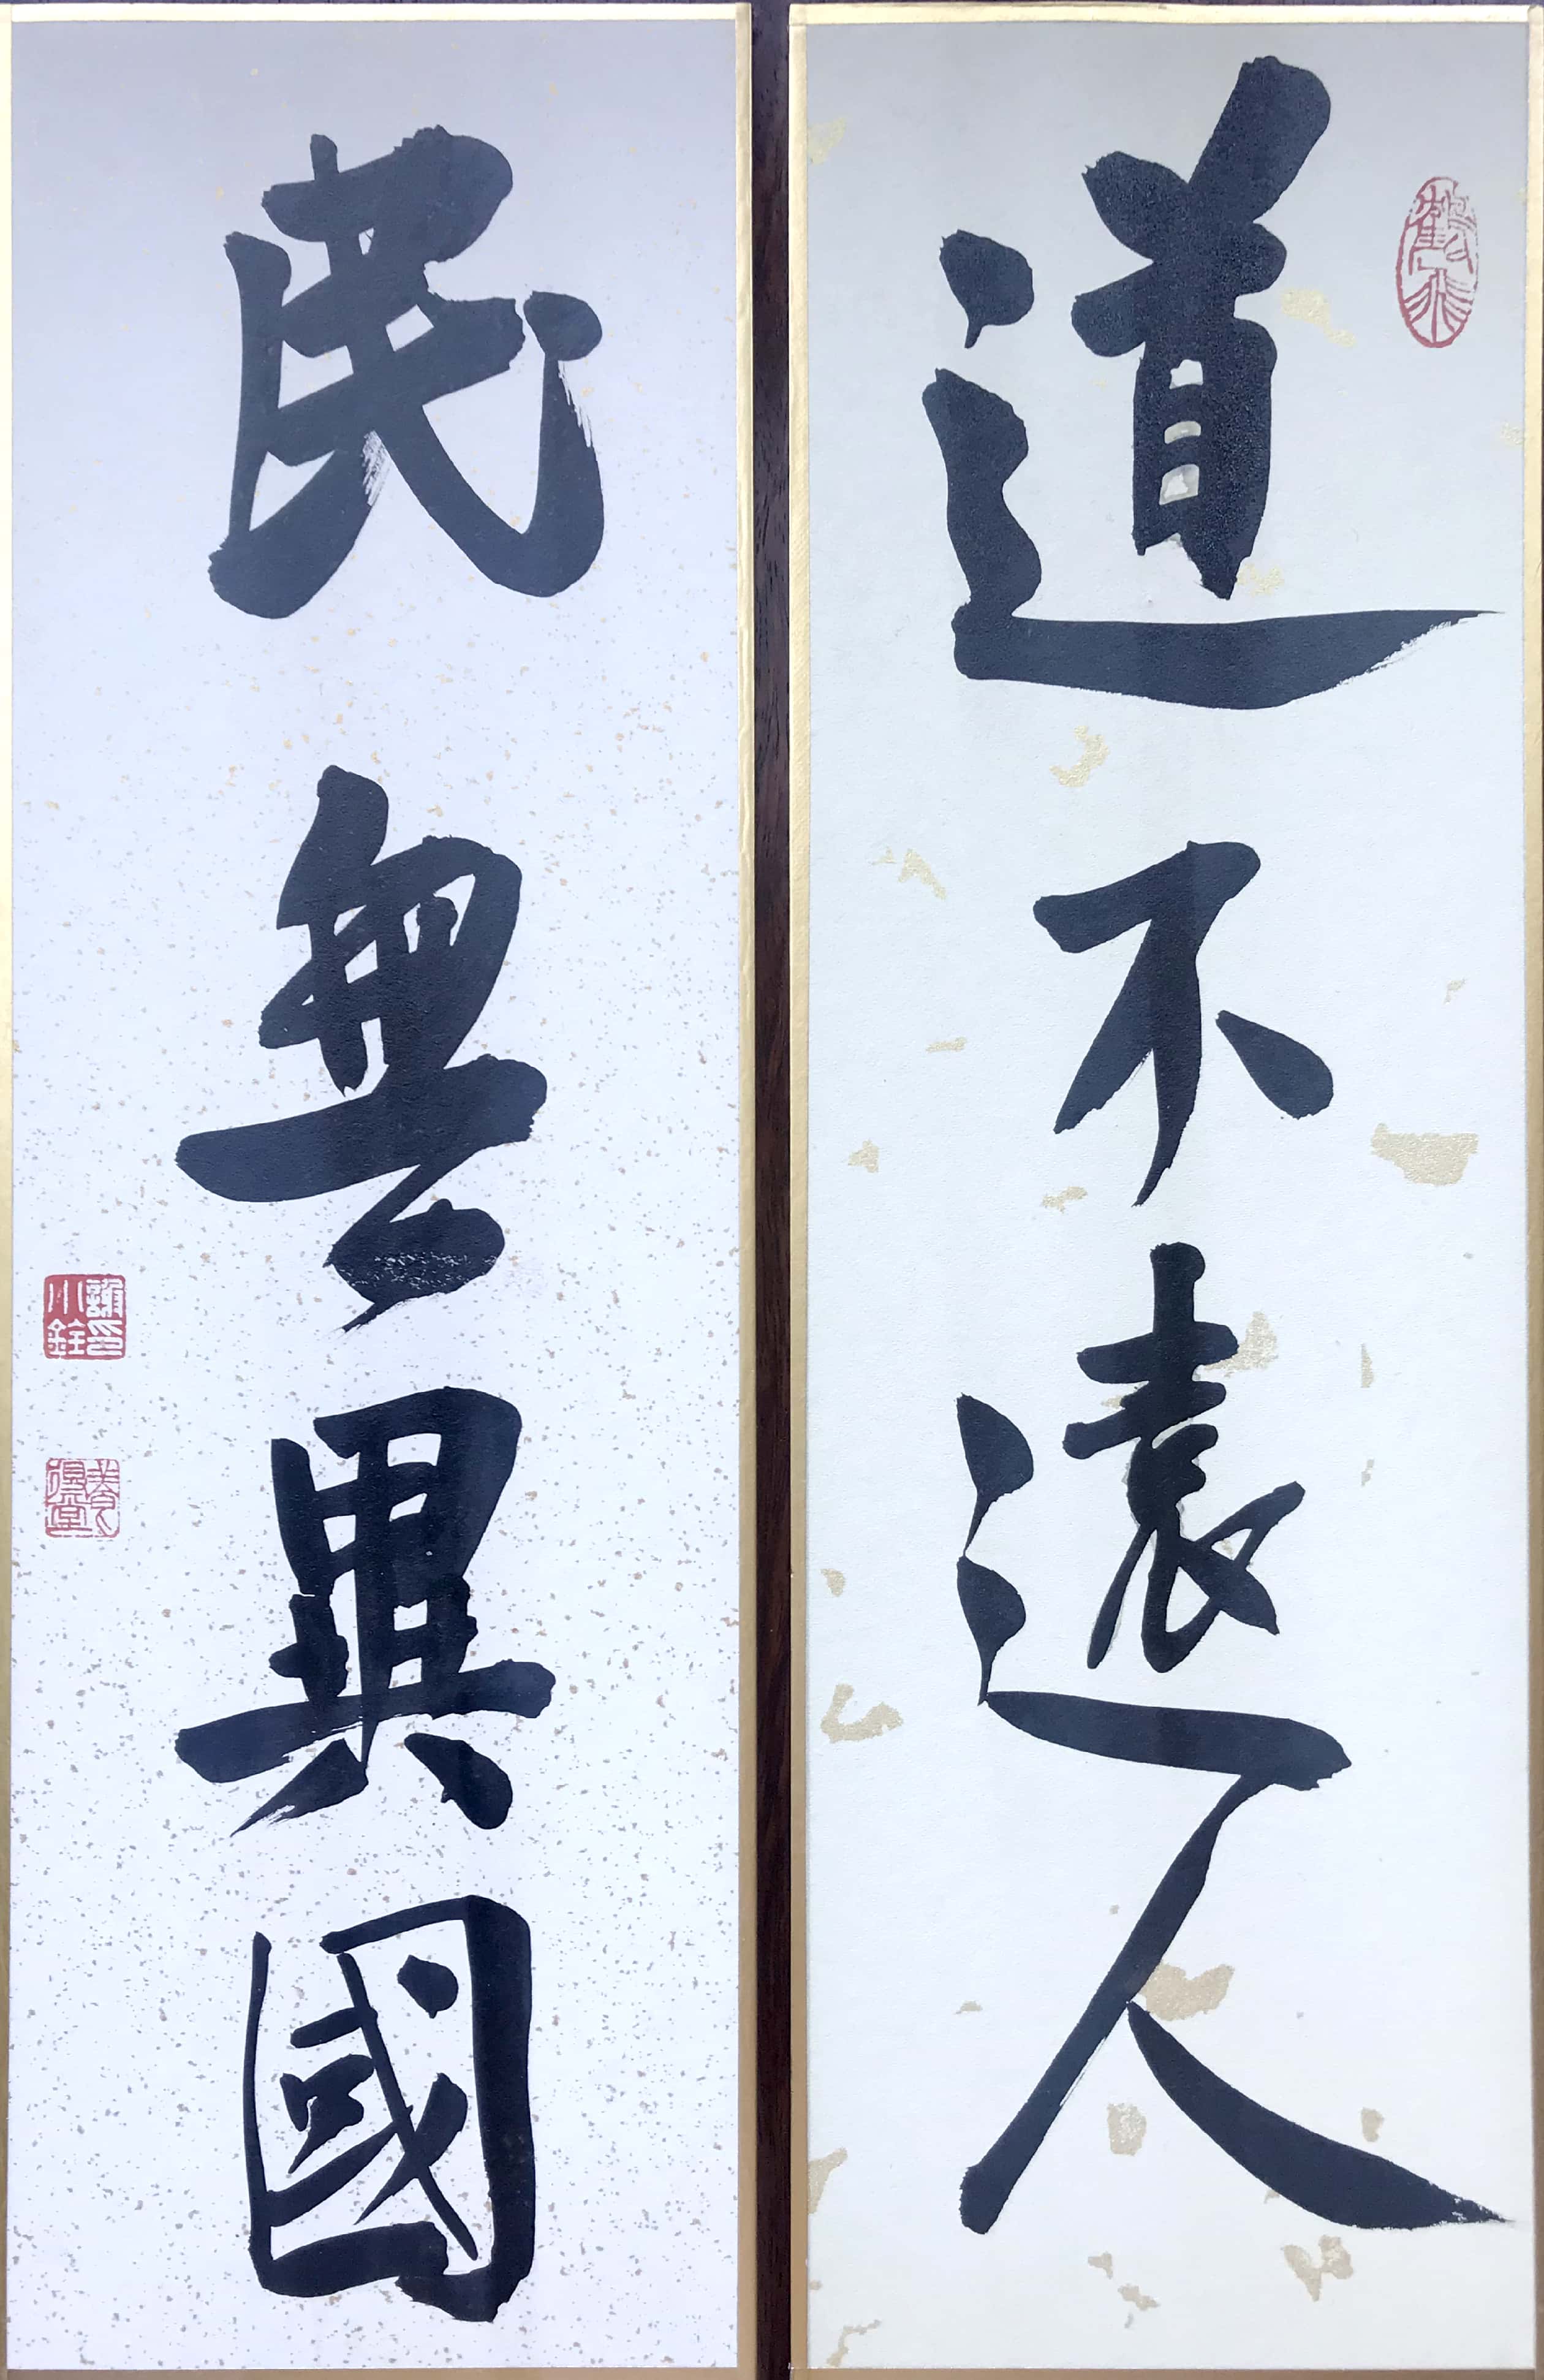 道不遠人
民無異國